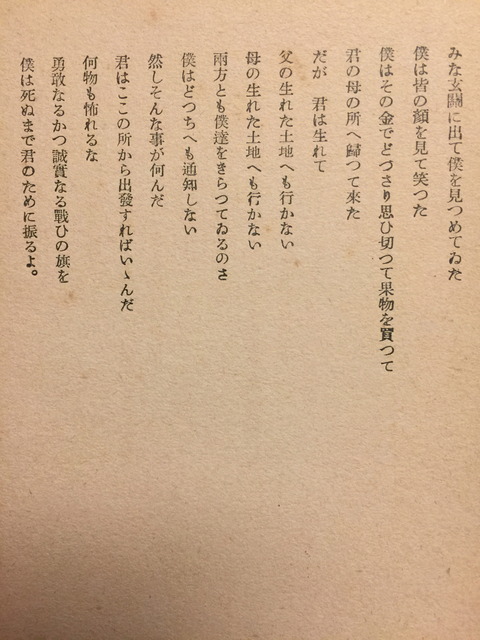 みな玄關に出て僕を見つめてゐた
僕は皆の顏を見て笑つた
僕はその金でどつさり思ひ切つて果物を買つて
君の母の所へ歸つて來た
だが　君は生れて
父の生れた土地へも行かない
母の生れた土地へも行かない
兩方とも僕達をきらつてゐるのさ
僕はどつちへも通知しない
然しそんな事が何んだ
君はここの所から出發すればいゝんだ
何物も怖れるな
勇敢なるかつ誠實なる戰ひの旗を
僕は死ぬまで君のために振るよ。